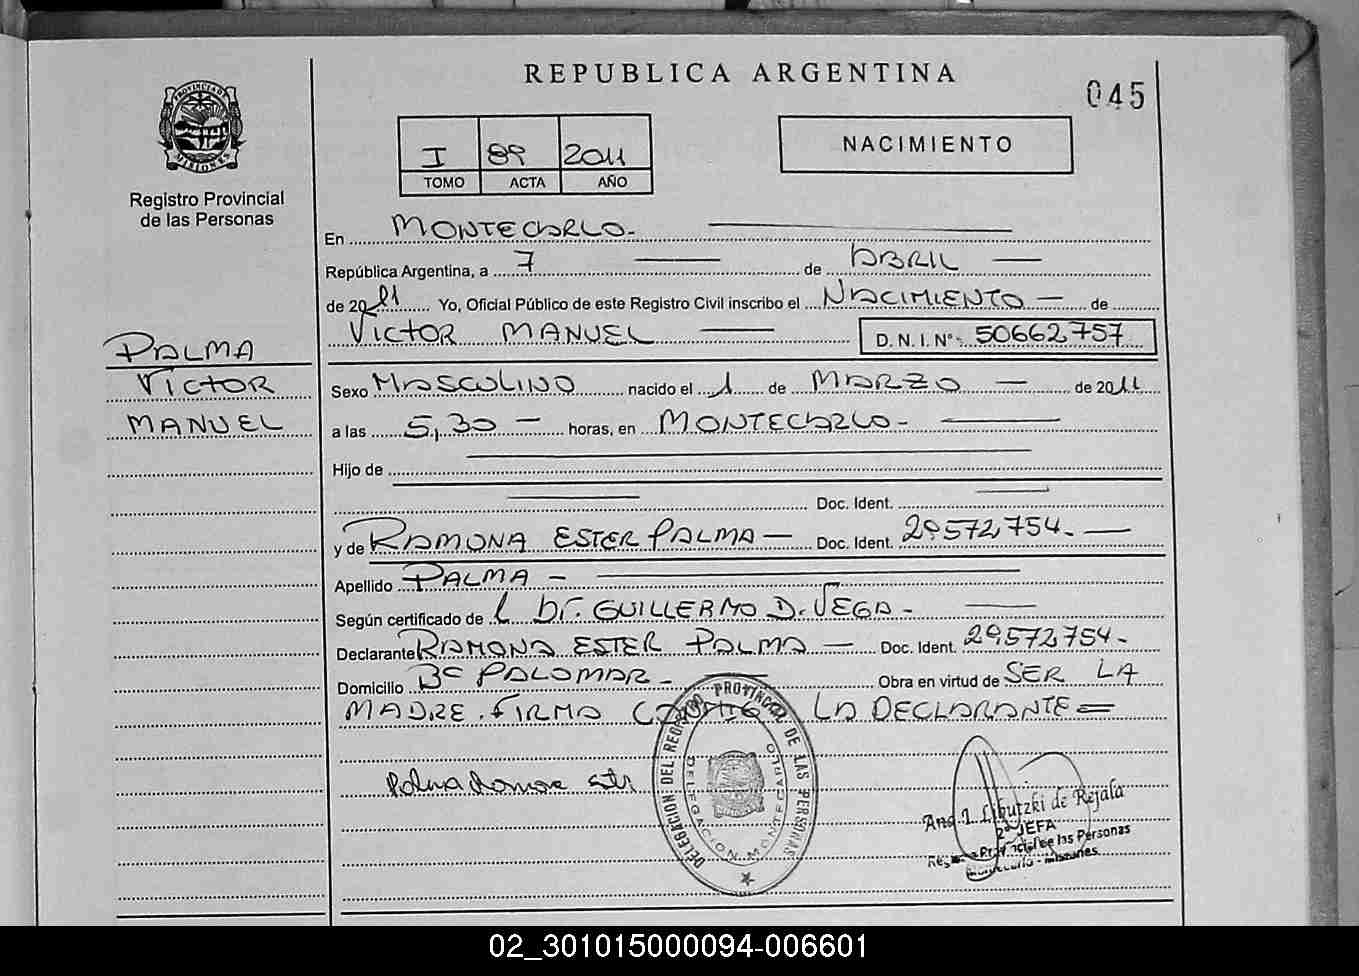 REPUBLICA ARGENTINA
045
PROVINCIA DE MISIONES
Registro Provincial
de las Personas
I 89 2011
TOMO ACTA AÑO
NACIMIENTO
En MONTECARLO-
República Argentina, a 7 de ABRIL
de 2011 Yo, Oficial Público de este Registro Civil inscribo el NACIMIENTO — de
VICTOR MANUEL D. N. I. Nº 50662757
PALMA
VICTOR
MANUEL
Sexo MASCULINO nacido el 1 de MARZO — de 2011
a las 5,30 — horas, en MONTECARLO-
Hijo de
Doc. Ident.
y de RAMONA ESTER PALMA — Doc. Ident. 29572754.-
Apellido PALMA —
Según certificado de l Dr. GUILLERMO D. VEGA -
Declarante RAMONA ESTER PALMA — Doc. Ident. 29572754-
Domicilio Bº PALOMAR - Obra en virtud de SER LA
MADRE. FIRMA CONMIGO LA DECLARANTE =
Palma Ramona
DELEGACION DEL REGISTRO PROVINCIAL DE LAS PERSONAS
DELEGACION MONTECARLO
Ana I. Libutzki de Rejala
2º JEFA
Registro Provincial de las Personas
Montecarlo - Misiones
02_301015000094-006601